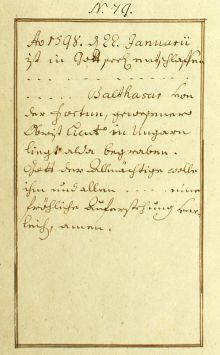 N. 79.
Ao 1598. d 22. Januarii
ist in Gott seel. entschlaffen
. . . . . . . . . . . . . . .
. . . . . . Balthasar von
der Fortun, gewesener
Obrist Leut. in Ungarn
liegt alda begraben.
Gott der Allmächtige wolle
ihm und allen . . . . eine
fröhliche Auferstehung ver-
leih, amen.